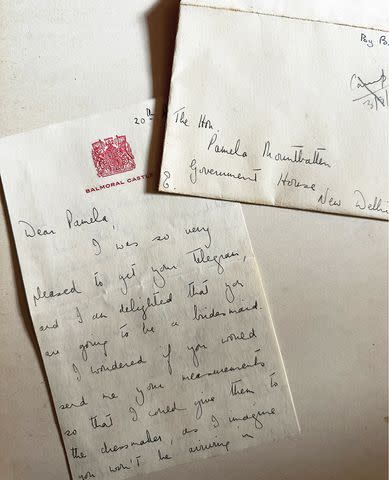 By Po
The Hon.
Pamela Mountbatten
Government House
New Delhi
20th
BALMORAL CASTLE
Dear Pamela,
I was so very
pleased to get your telegram,
and I am delighted that you
are going to be a bridesmaid.
I wondered if you would
send me your measurements
so that I could give them to
the dressmaker, as I imagine
you won't be arriving in